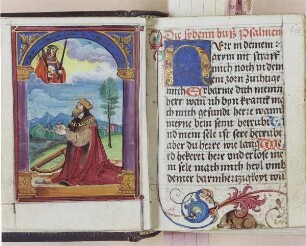 Die sybenn buß Psalmen
Er in deinem
zoryn nit straff
mich noch in dein
em zorn zuchtige
mich Erbarme dich meinn
herr wan ich byn kranck mach
mich gesundt herre wann
meyne beyn seint betrubt Und
mein sele ist sere betrubt
aber du herre wie lang
bekeret herr und erlose mey
sele mach mich heyl umb
deiner barmhertzigkeyt wi